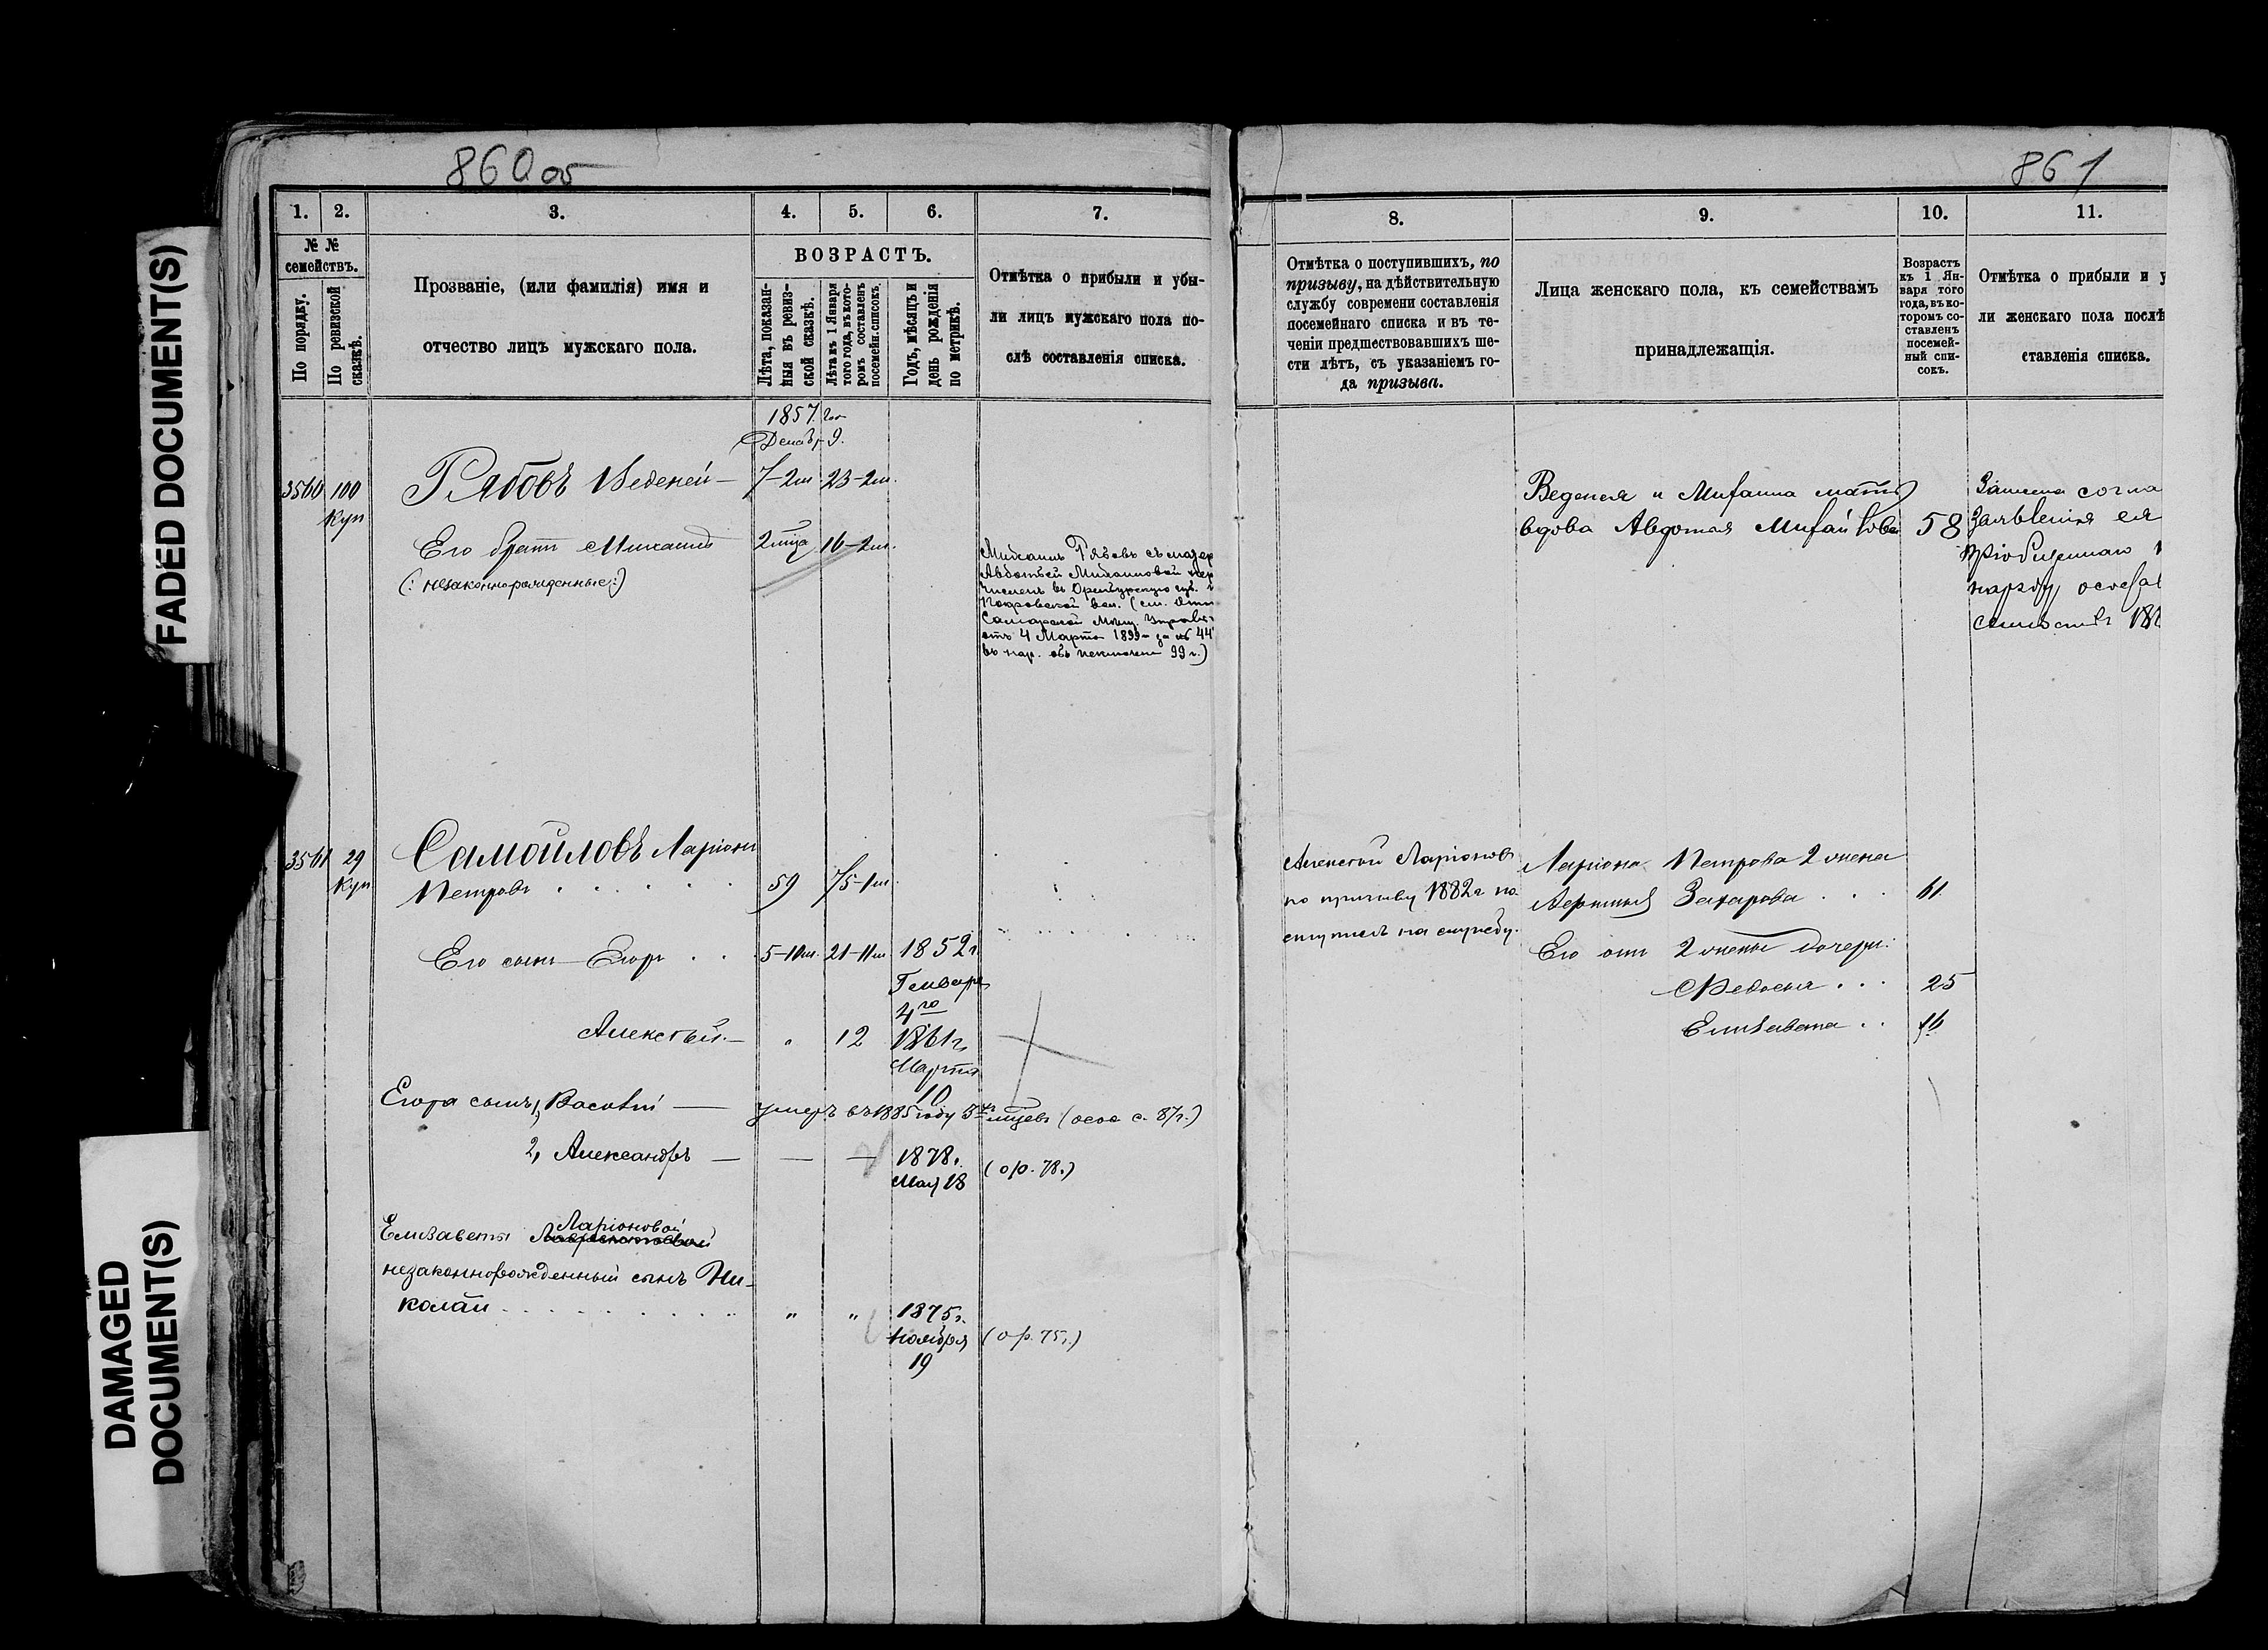 FADED DOCUMENT(S)
DAMAGED
DOCUMENT(S)
860 об
1. 2. 3. 4. 5. 6. 7.
№ №
семействъ.
По порядку.
По ревизской
сказкѣ.
Прозваніе, (или фамилія) имя и
отчество лицъ мужскаго пола.
ВОЗРАСТЪ.
Лѣта, показан-
ныя въ ревиз-
ской сказкѣ.
Лѣта къ 1 Января
того года, въ кото-
ромъ составленъ
посемейн. списокъ.
Годъ, мѣсяцъ и
день рожденія
по метрикѣ.
Отмѣтка о прибыли и убы-
ли лицъ мужскаго пола по-
слѣ составленія списка.
1857 го
Декабр 9.
3560 100 Рябовъ Веденей — 7-2м. 23-2м.
Куп
Его братъ Михаилъ 2 мца 16-2м.
(: незаконнорожденные:)
Михаилъ Рябовъ съ матер
Авдотьей Михаиловой пер
численъ въ Оренбургскую губ.
Покровской вол. (см. Отн
Самарской Мѣщ. Управы
отъ 4 Марта 1899 за № 44
въ нар. объ исключени 99 г.)
3561 29 Самойловъ Ларіонъ
Куп Петровъ . . . . . 59 75-1м.
Его сынъ Егоръ . . 5-10м. 21-11м 1852 г
Генваря
4го
Алексѣй — " 12 1861 г
Марта
10
Егора сынъ 1, Василій — умеръ въ 1885 году 5 мѣсяцевъ (осоа с. 87 г.)
2, Александръ — — — 1878 г. (ор. 78.)
Мая 18
Ларіоновой
Елизаветы
незаконнорожденный сынъ Ни-
колай . . . . . . . . " " 1875 г.
Ноября (ор. 75 г.)
19
861
8. 9. 10. 11.
Отмѣтка о поступившихъ, по
призыву, на дѣйствительную
службу современи составленія
посемейнаго списка и въ те-
ченіи предшествовавшихъ ше-
сти лѣтъ, съ указаніемъ го-
да призыва.
Лица женскаго пола, къ семействамъ
принадлежащія.
Возрастъ
къ 1 Ян-
варя того
года, въ ко-
торомъ со-
ставленъ
посемей-
ный спи-
сокъ.
Отмѣтка о прибыли и у
ли женскаго пола послѣ
ставленія списка.
Веденея и Михаила мать
вдова Авдотья Михайлова 58
согла
Заявленія ея
пріобщеннаго
наряду особа
Алексѣй Ларіоновъ
по призыву 1882 г по
ступилъ на службу.
Ларіона Петрова 2 жена
Захарова . . . 61
Его отъ 2 жены дочери:
Ѳедосья . . . 25
Елизавета . . 16